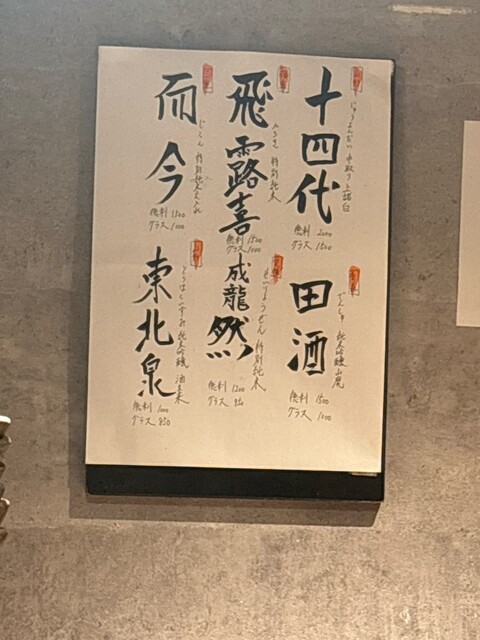 十四代
じゅうよんだい 中取り上諸白
徳利 2000
グラス 1500
田酒
でんしゅ 純米吟醸 山廃
徳利 1500
グラス 1000
飛露喜
ひろき 特別純米
徳利 1500
グラス 1000
成龍然
せいりょうぜん 特別純米
徳利 1200
グラス 850
而今
じこん 特別純米
徳利 1500
グラス 1000
東北泉
とうほくいずみ 純米吟醸
徳利 1000
グラス 850